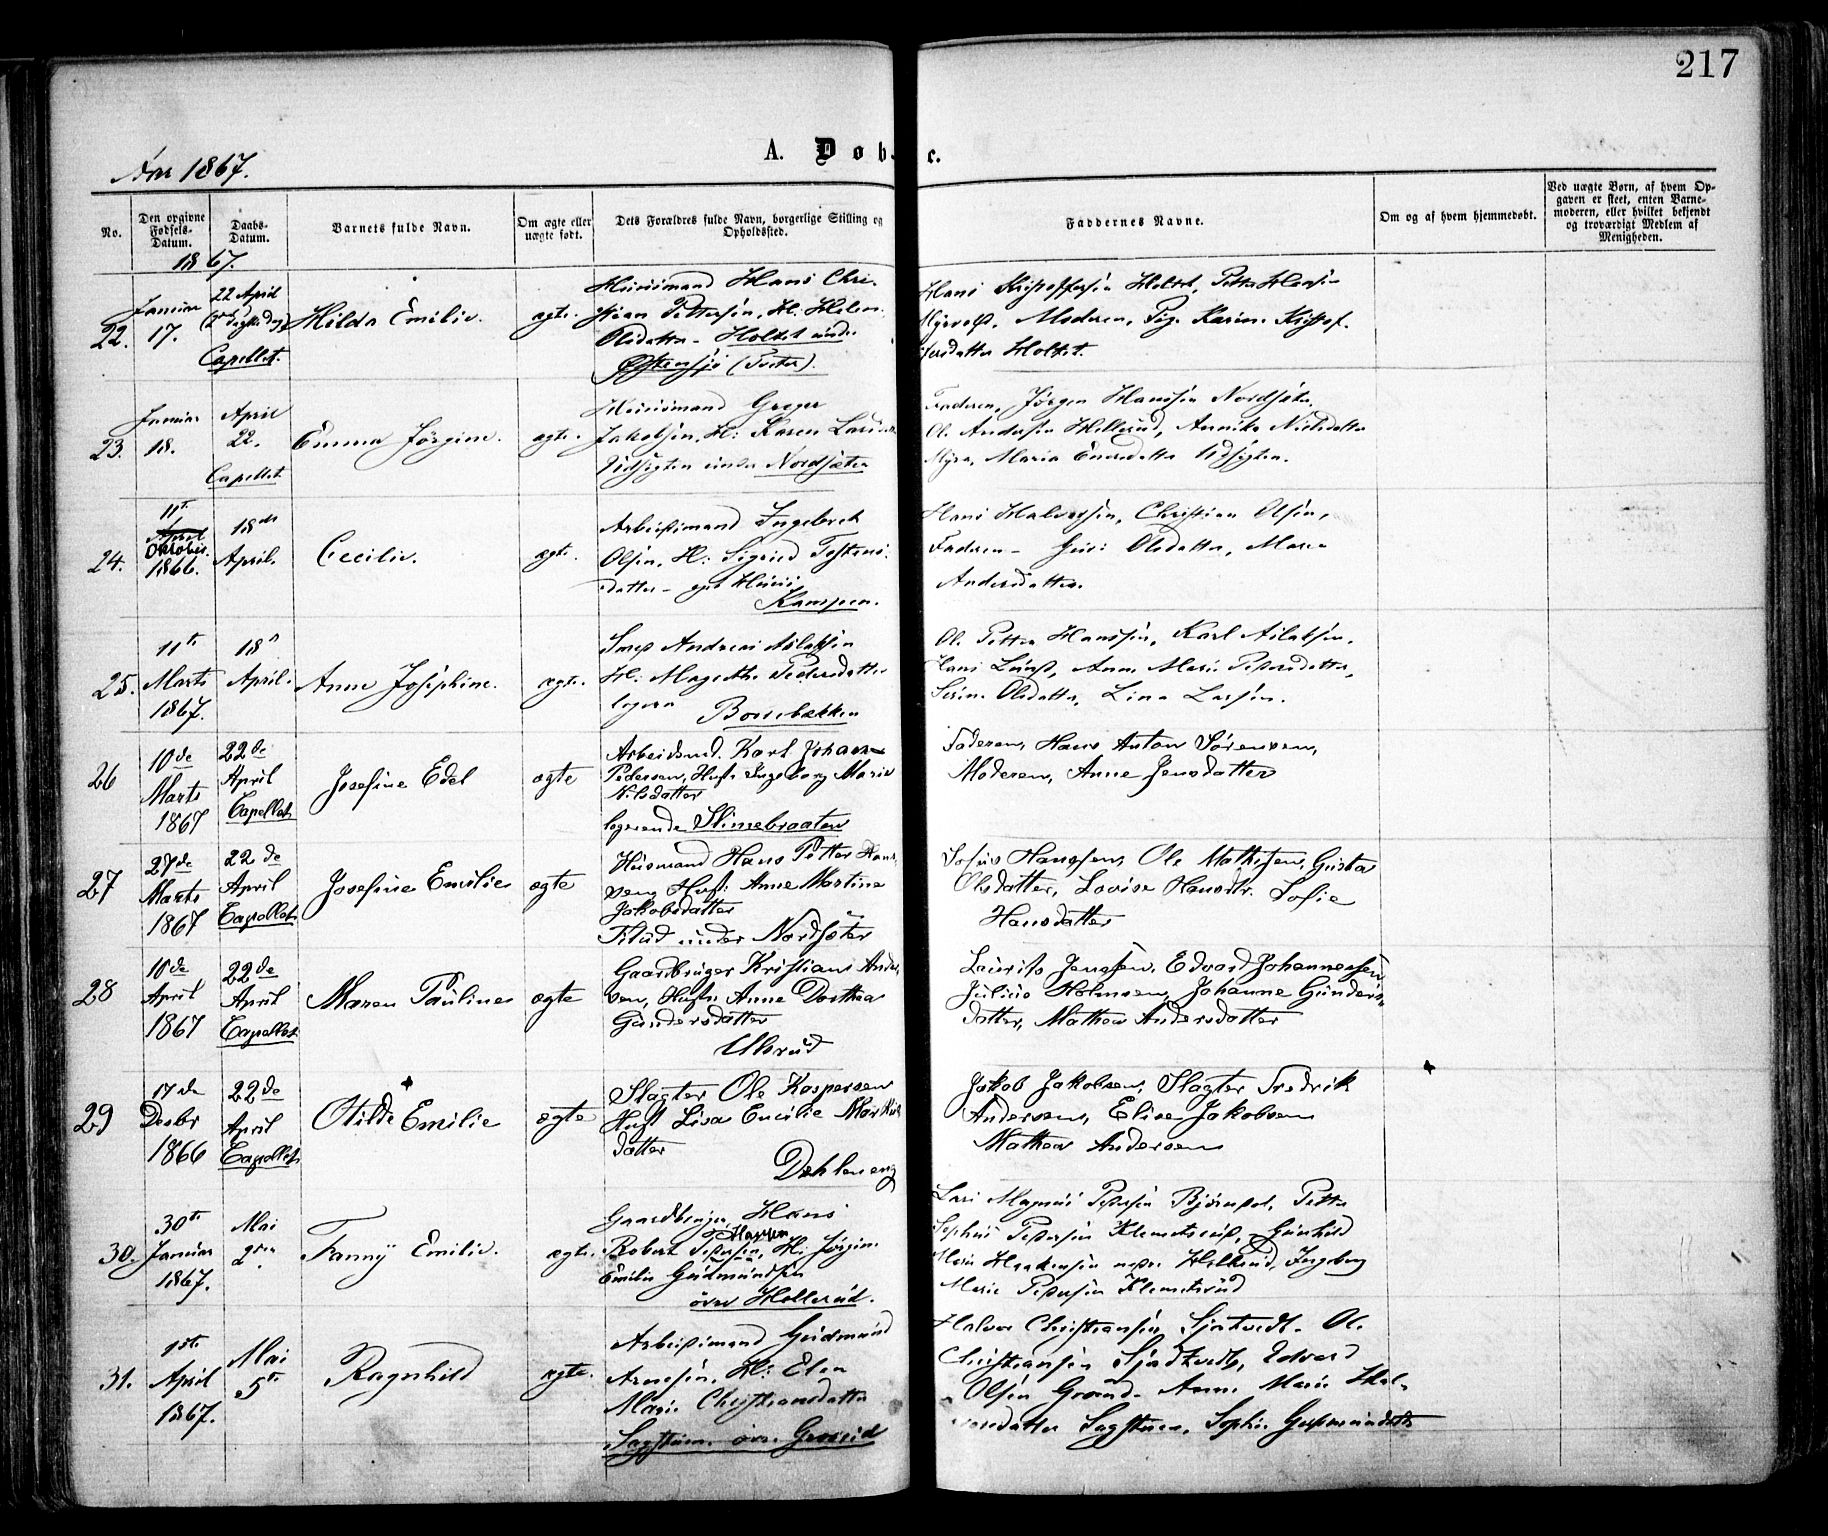 217
A. Døbte.
Aar 1867.
No.
Den opgivne
Fødsels-
Datum.
Daabs-
Datum.
Barnets fulde Navn.
Om ægte eller
uægte født.
Dets Forældres fulde Navn, borgerlige Stilling og
Opholdssted.
Faddernes Navne.
Om og af hvem hjemmedøbt.
Ved uægte Børn, af hvem Op-
gaven er skeet, enten Barne-
moderen, eller hvilket bekjendt
og troværdigt Medlem af
Menigheden.
1867.
22.
Januar
17.
22 April
Capellet.
Hilda Emilie.
ægte.
Huusmand Hans Chri-
stian Pettersen, H: Helene
Olsdatter - Holtet under
Østensjø
Hans Kristoffersen Holtet, Petter Hansen
Moderen, Pige Karine Kristof-
fersdatter Holtet.
23.
Januar
18.
April
22.
Capellet
Emma Jørgine.
ægte.
Huusmand Greger
Jakobsen, H: Karen
Udsigten under Nordsæter
Faderen, Jørgen Hansen Nordsæter,
Ole Andersen Hellerud, Annike Nielsdatter
Myra, Maria Enersdatter Udsigten.
24.
11te
April
Oktober
1866.
18de
April.
Cecilie.
ægte.
Arbeidsmand Ingebret
Olsen, H: Sigrid Tostens-
datter - eget Huus
Kampen.
Hans Halvorsen, Christian Olsen,
Faderen - Guri Olsdatter, Maren
Andersdatter.
25.
11te
Marts
1867.
18
April.
Anne Josephine.
ægte.
Smed Andreas Aslaksen
H: Magethe Pedersdatter
logera Bossebækken
Ole Petter Hansen, Karl Aslaksen,
Hans Anne Marie Pedersdatter,
Serine Olsdatter, Lina Larsen.
26
10de
Marts
1867
22de
April
Capellet
Josefine Edel
ægte
Arbeidsmd. Karl Johan
Pedersen, Hustr Ingeborg Marie
Nilsdatter
logerende Slimebraaten
Faderen, Hans Anton Sørensen,
Moderen, Anne Jensdatter
27
27de
Marts
1867
22de
April
Capellet
Josefine Emilie
ægte
Husmand Hans Petter Han-
sen, Hust: Anne Martine
Jakobsdatter
under Nordsæter
Sofus Hansen, Ole Mathisen, Gusta
Olsdatter, Lovise Hansdtr. Sofie
Hansdatter
28
10de
April
1867
22de
April
Capellet
Maren Pauline
ægte
Gaardbruger Kristian Ander-
sen, Hustr Anne Dorthea
Gundersdatter
Ulsrud
Laurits Jensen, Edvard Johannessen,
Julius Holmsen, Johanne Gunders-
datter, Mathea Andersdatter
29
17de
Desbr
1866
22de
April
Capellet
Otilde Emilie
ægte
Slagter Ole Kaspersen
Hust Lisa Emilie
datter
Dehleneng
Jakob Jakobsen, Slagter Fredrik
Andersen, Elise Jakobsen
Mathea Andersen
30.
30te
Januar
1867.
Mai
2den
Fanny Emilie.
ægte.
Gaardbruger Hans
Robert Petersen, H: Jørgine
Hansen
Emilie Gudmundsen
øvre Hellerud.
Lars Magnus Petersen Petter
Sophus Petersen Klemetsrud, Gunhild
Marie Haakensen nedre Hellerud, Ingeborg
Marie Petersen Klemetsrud
31.
1ste
April
1867.
Mai
5te
Ragnhild
ægte.
Arbeidsmand Gudmund
Arnesen, H: Elen
Marie Christiansdatter
Sagstuen øvre
Halvor Christiansen, Ole
Christiansen Edvard
Olsen Anne Marie Hal-
vorsdatter Sagstuen, Sophie Gudmundsdatter